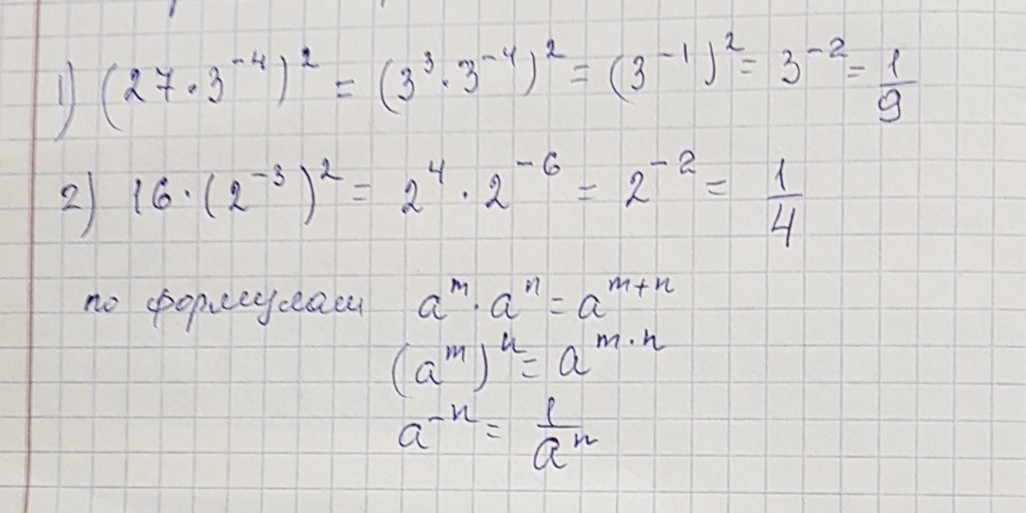 1) (27·3⁻⁴)² = (3³·3⁻⁴)² = (3⁻¹)² = 3⁻² = 1/9
2) 16·(2⁻³)² = 2⁴·2⁻⁶ = 2⁻² = 1/4
по формулам aᵐ·aⁿ = aᵐ⁺ⁿ
(aᵐ)ⁿ = aᵐ·ⁿ
a⁻ⁿ = 1/aⁿ